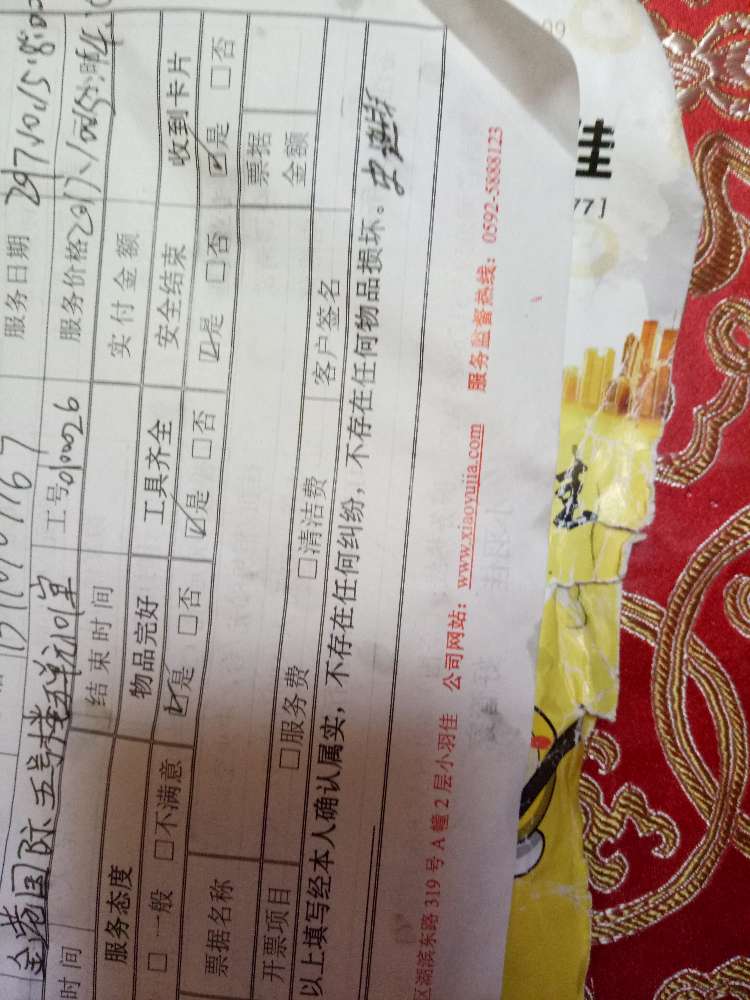 服务日期 2017.10.15.8:00
金港国际五号楼 单元101室 工号010026 服务价格
时间 结束时间 实付金额
服务态度 物品完好 工具齐全 安全结束 收到卡片
□一般 □不满意 ☑是 □否 ☑是 □否 ☑是 □否 ☑是 □否
票据名称 票据
开票项目 □服务费 □清洁费 客户签名 金额
以上填写经本人确认属实，不存在任何纠纷，不存在任何物品损坏。
区湖滨东路 319 号 A 幢 2 层小羽佳 公司网站：www.xiaoyujia.com 服务监督热线：0592-5888123
771